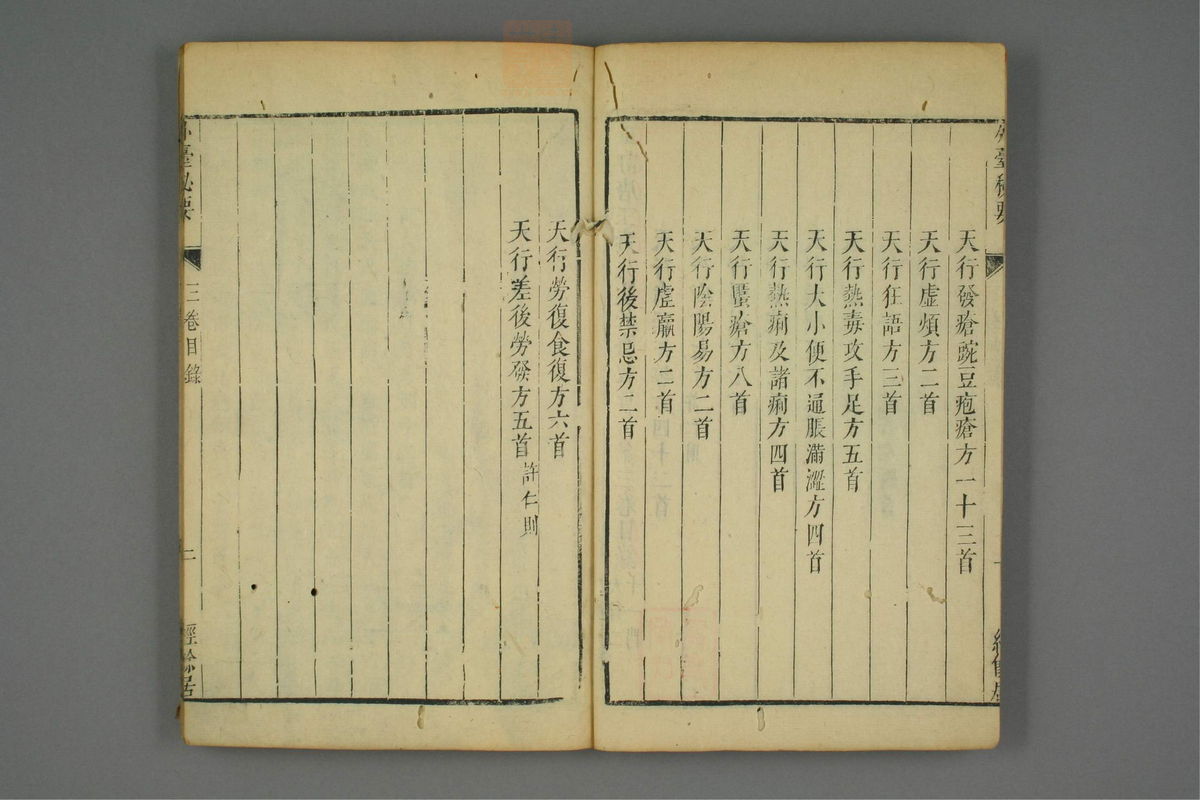 天行發瘡豌豆疱瘡方一十三首
天行虛煩方二首
天行狂語方三首
天行熱毒攻手足方五首
天行大小便不通脹滿澀方四首
天行熱痢及諸痢方四首
天行䘌瘡方八首
天行陰陽易方二首
天行虛羸方二首
天行後禁忌方二首
天行勞復食復方六首
天行差後勞發方五首 許仁則
臺秘要 三卷目錄 二 經餘居